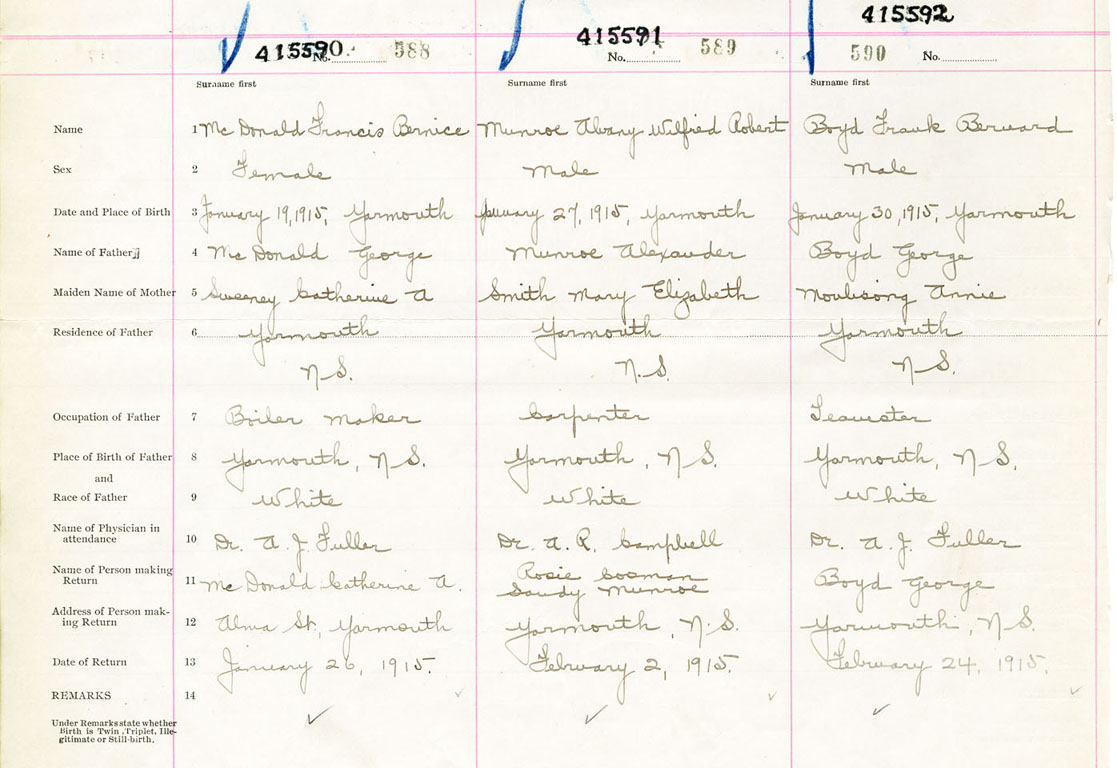 415590 588 415591 589 415592
No. No. 590 No.
Surname first Surname first Surname first
Name 1 Mc Donald Francis Bernice Munroe Albany Wilfred Robert Boyd Frank Bernard
Sex 2 Female Male Male
Date and Place of Birth 3 January 19, 1915, Yarmouth January 27, 1915, Yarmouth January 30, 1915, Yarmouth
Name of Father 4 Mc Donald George Munroe Alexander Boyd George
Maiden Name of Mother 5 Sweeney Catherine A Smith Mary Elizabeth Annie
Residence of Father 6 Yarmouth Yarmouth Yarmouth
N.S. N.S. N.S.
Occupation of Father 7 Boiler maker Carpenter Teamster
Place of Birth of Father 8 Yarmouth, N.S. Yarmouth, N.S. Yarmouth, N.S.
and
Race of Father 9 White White White
Name of Physician in
attendance 10 Dr. A. J. Fuller Dr. A. R. Campbell Dr. A. J. Fuller
Name of Person making Rosie Cosman
Return 11 Mc Donald Catherine A. Sandy Munroe Boyd George
Address of Person mak-
ing Return 12 Alma St, Yarmouth Yarmouth, N.S. Yarmouth, N.S.
Date of Return 13 January 26, 1915. February 2, 1915. February 24, 1915.
REMARKS 14
Under Remarks state whether
Birth is Twin, Triplet, Ille-
gitimate or Still-birth.